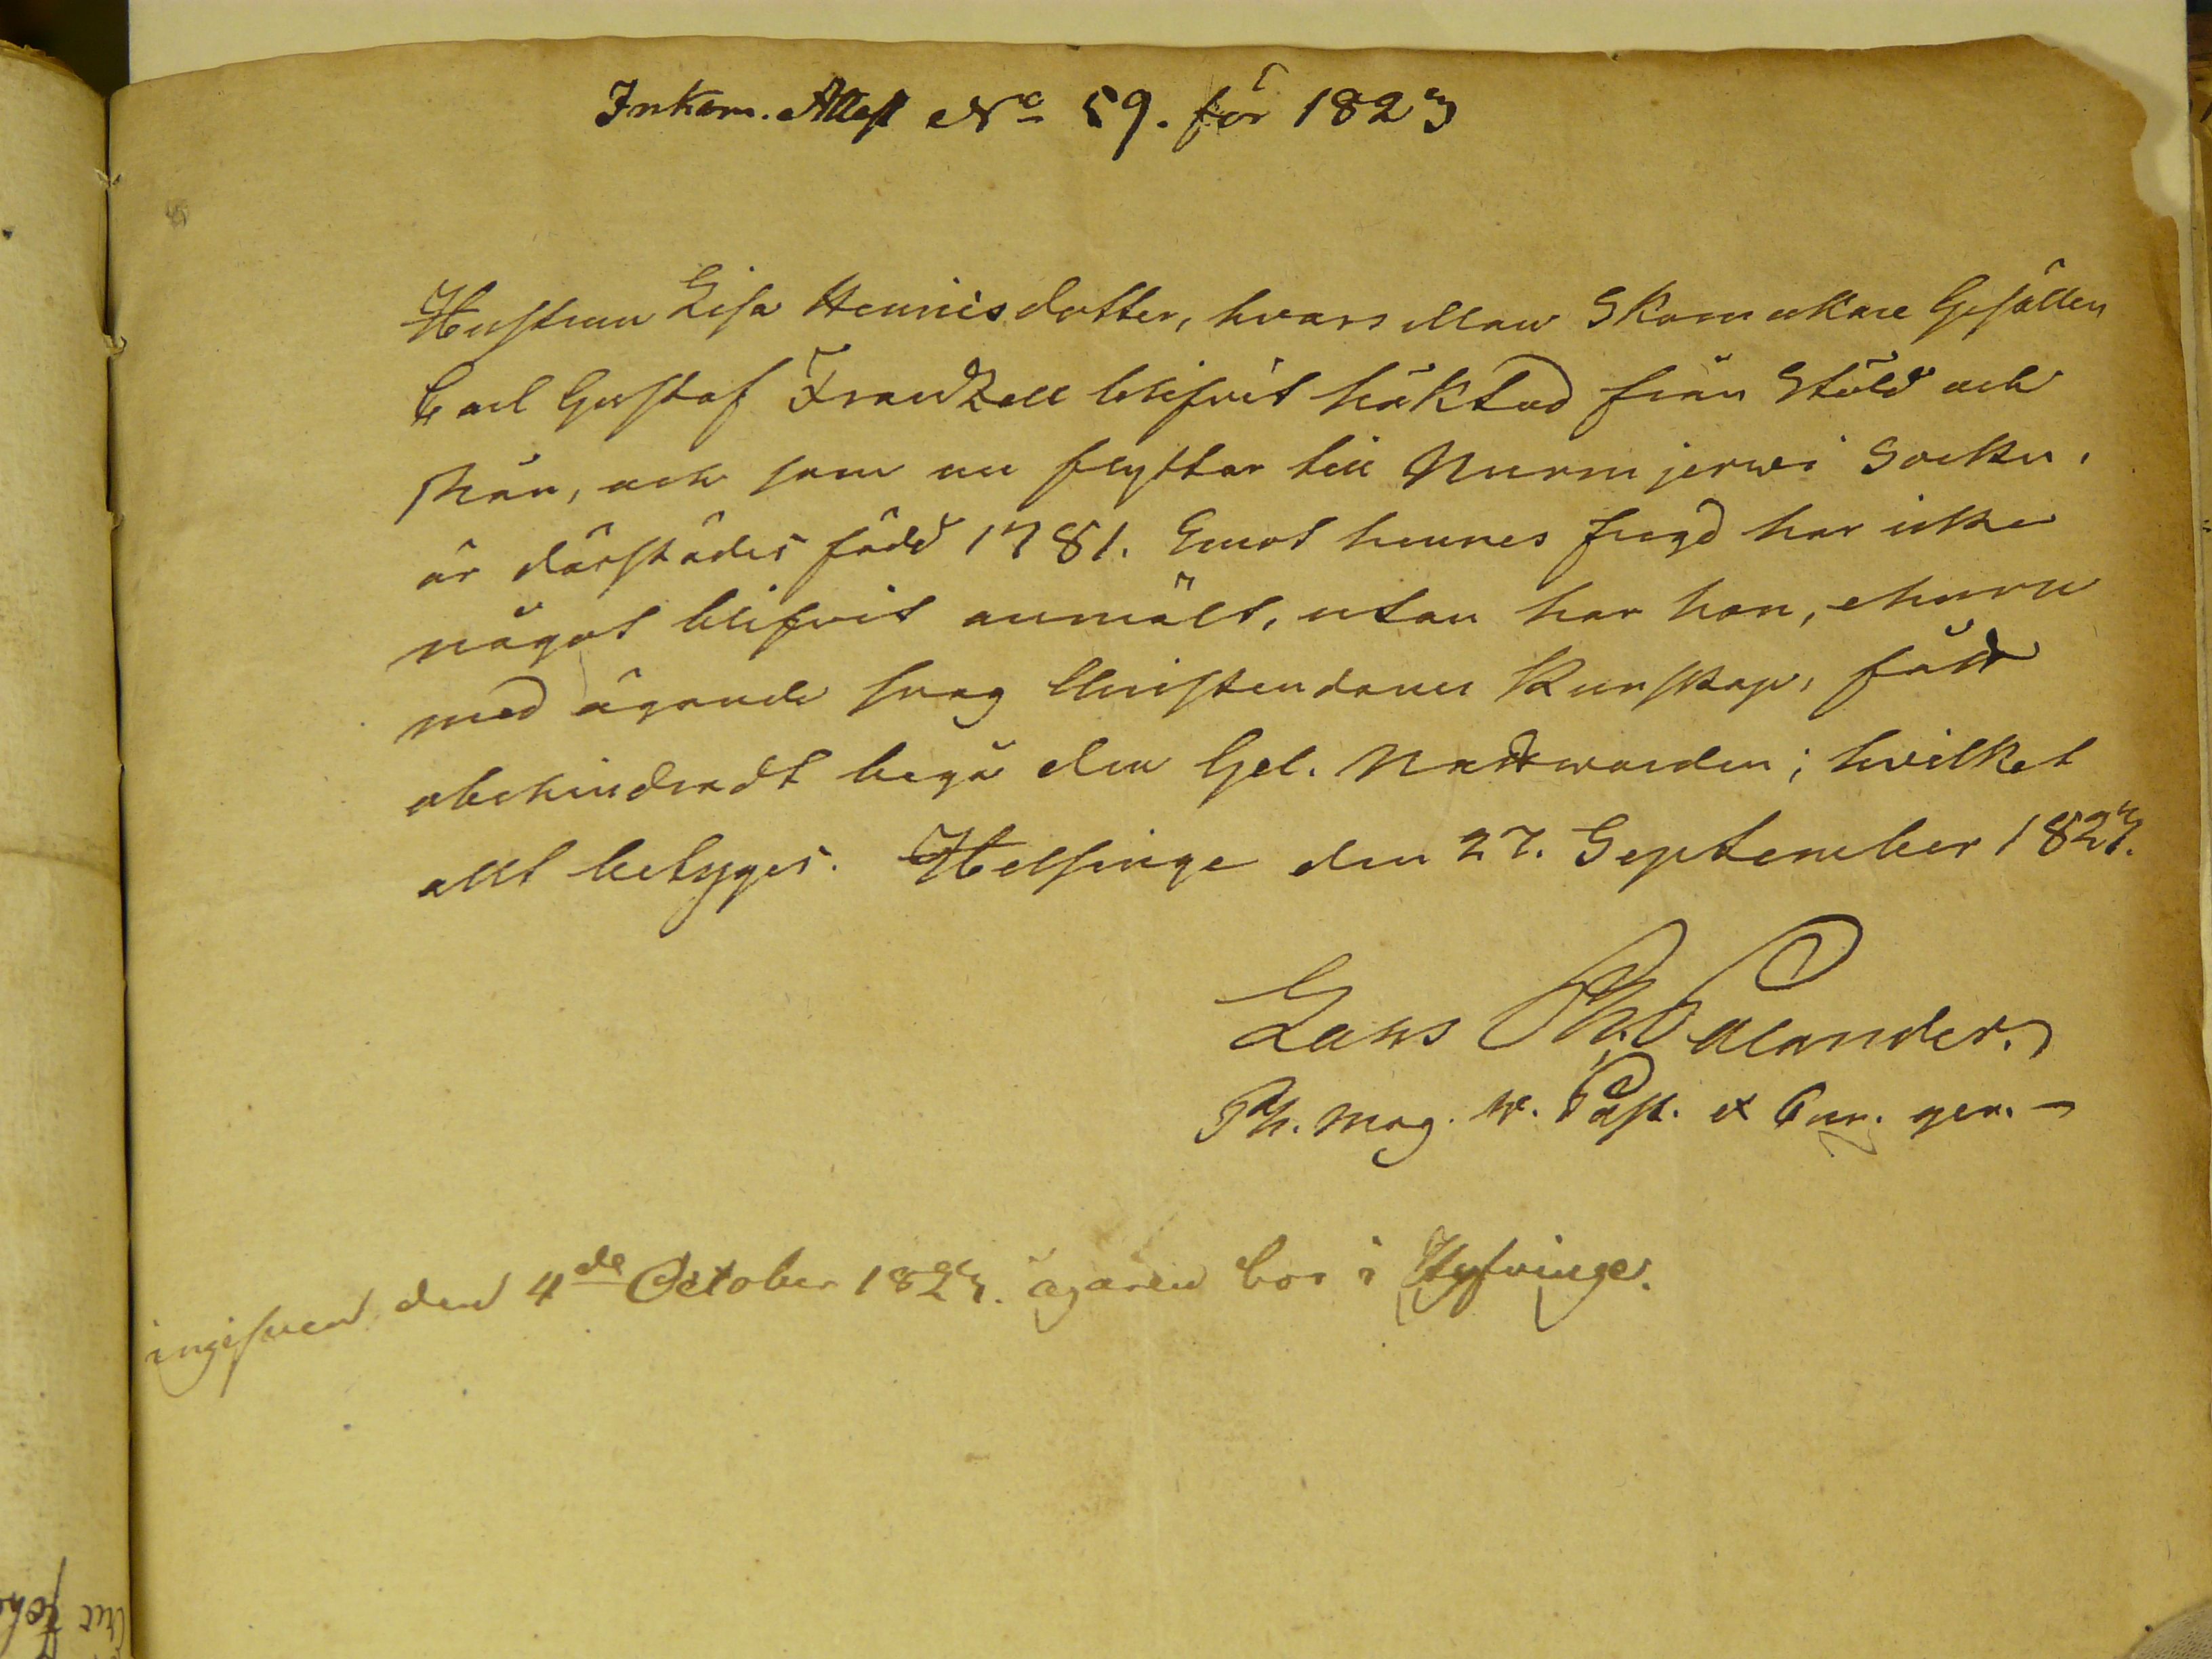 Inkom. Attest No 59. för 1823
Hustrun Lisa Henricsdotter, hvars Man Skomakare Gesällen
Carl Gustaf Frantzell blifvit häktad från Stöld och
Rån, och som nu flyttar till Nurmjerwi Sockn,
är därstädes född 1781. Emot hennes frejd har icke
något blifvit anmält, utan har hon, ehuru
med ägande svag Christendoms Kunskap, fådt
obehindradt begå den Hel. Nattwarden; hvilket
allt betyges. Helsinge den 27. September 1823.
Lars Ph. Palander.
Ph. Mag. V. Past. et Cur. ger.
ingifven den 4de October 1823. ägaren bor i Hyfvinge.